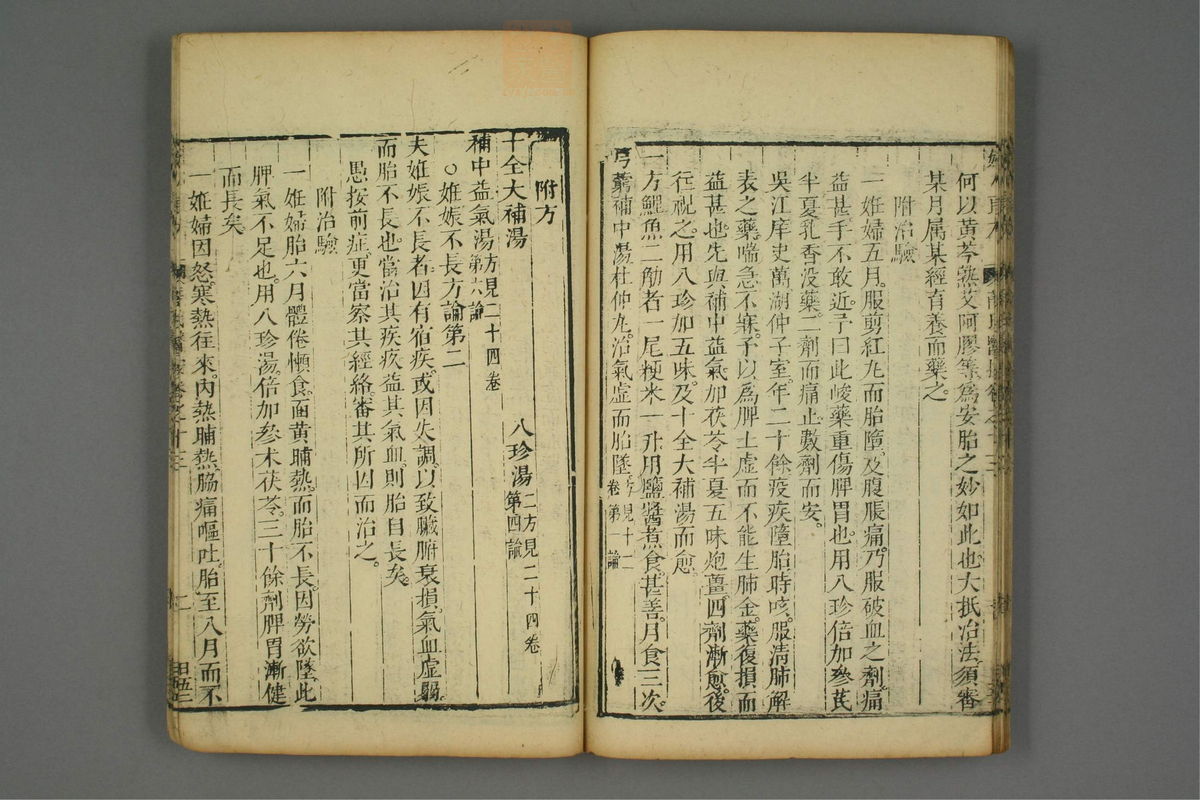 何以黃芩熟艾阿膠等爲安胎之妙如此也大抵治法須審
某月属某經育養而藥之
附治驗
一姙婦五月服剪紅九而胎墮及腹脹痛乃服破血之劑痛
益甚手不敢近予曰此峻藥重傷脾胃也用八珍倍加參芪
半夏乳香没藥二劑而痛止數劑而安
吳江庠史萬湖仲子室年二十餘疫疾墮胎時咳服清肺解
表之藥喘急不寐予以爲脾土虚而不能生肺金藥復損而
益甚也先與補中益氣加茯苓半夏五味炮薑四劑漸愈後
徃視之用八珍加五味及十全大補湯而愈
一方鯉魚二觔者一尾粳米一升用鹽醬煮食甚善月食三次
芎藭補中湯杜仲九治氣虚而胎墜方見十二卷第一論
附方
十全大補湯 八珍湯二方見二十四卷第四論
補中益氣湯方見二十四卷第六論
○姙娠不長方論第二
夫姙娠不長者因有宿疾或因失調以致臟腑衰損氣血虚弱
而胎不長也當治其疾疢益其氣血則胎自長矣
愚按前症更當察其經絡審其所因而治之
附治驗
一姙婦胎六月體倦懶食面黄晡熱而胎不長因勞欲墜此
脾氣不足也用八珍湯倍加參术茯苓三十餘劑脾胃漸健
而長矣
一姙婦因怒寒熱徃來內熱晡熱脇痛嘔吐胎至八月而不